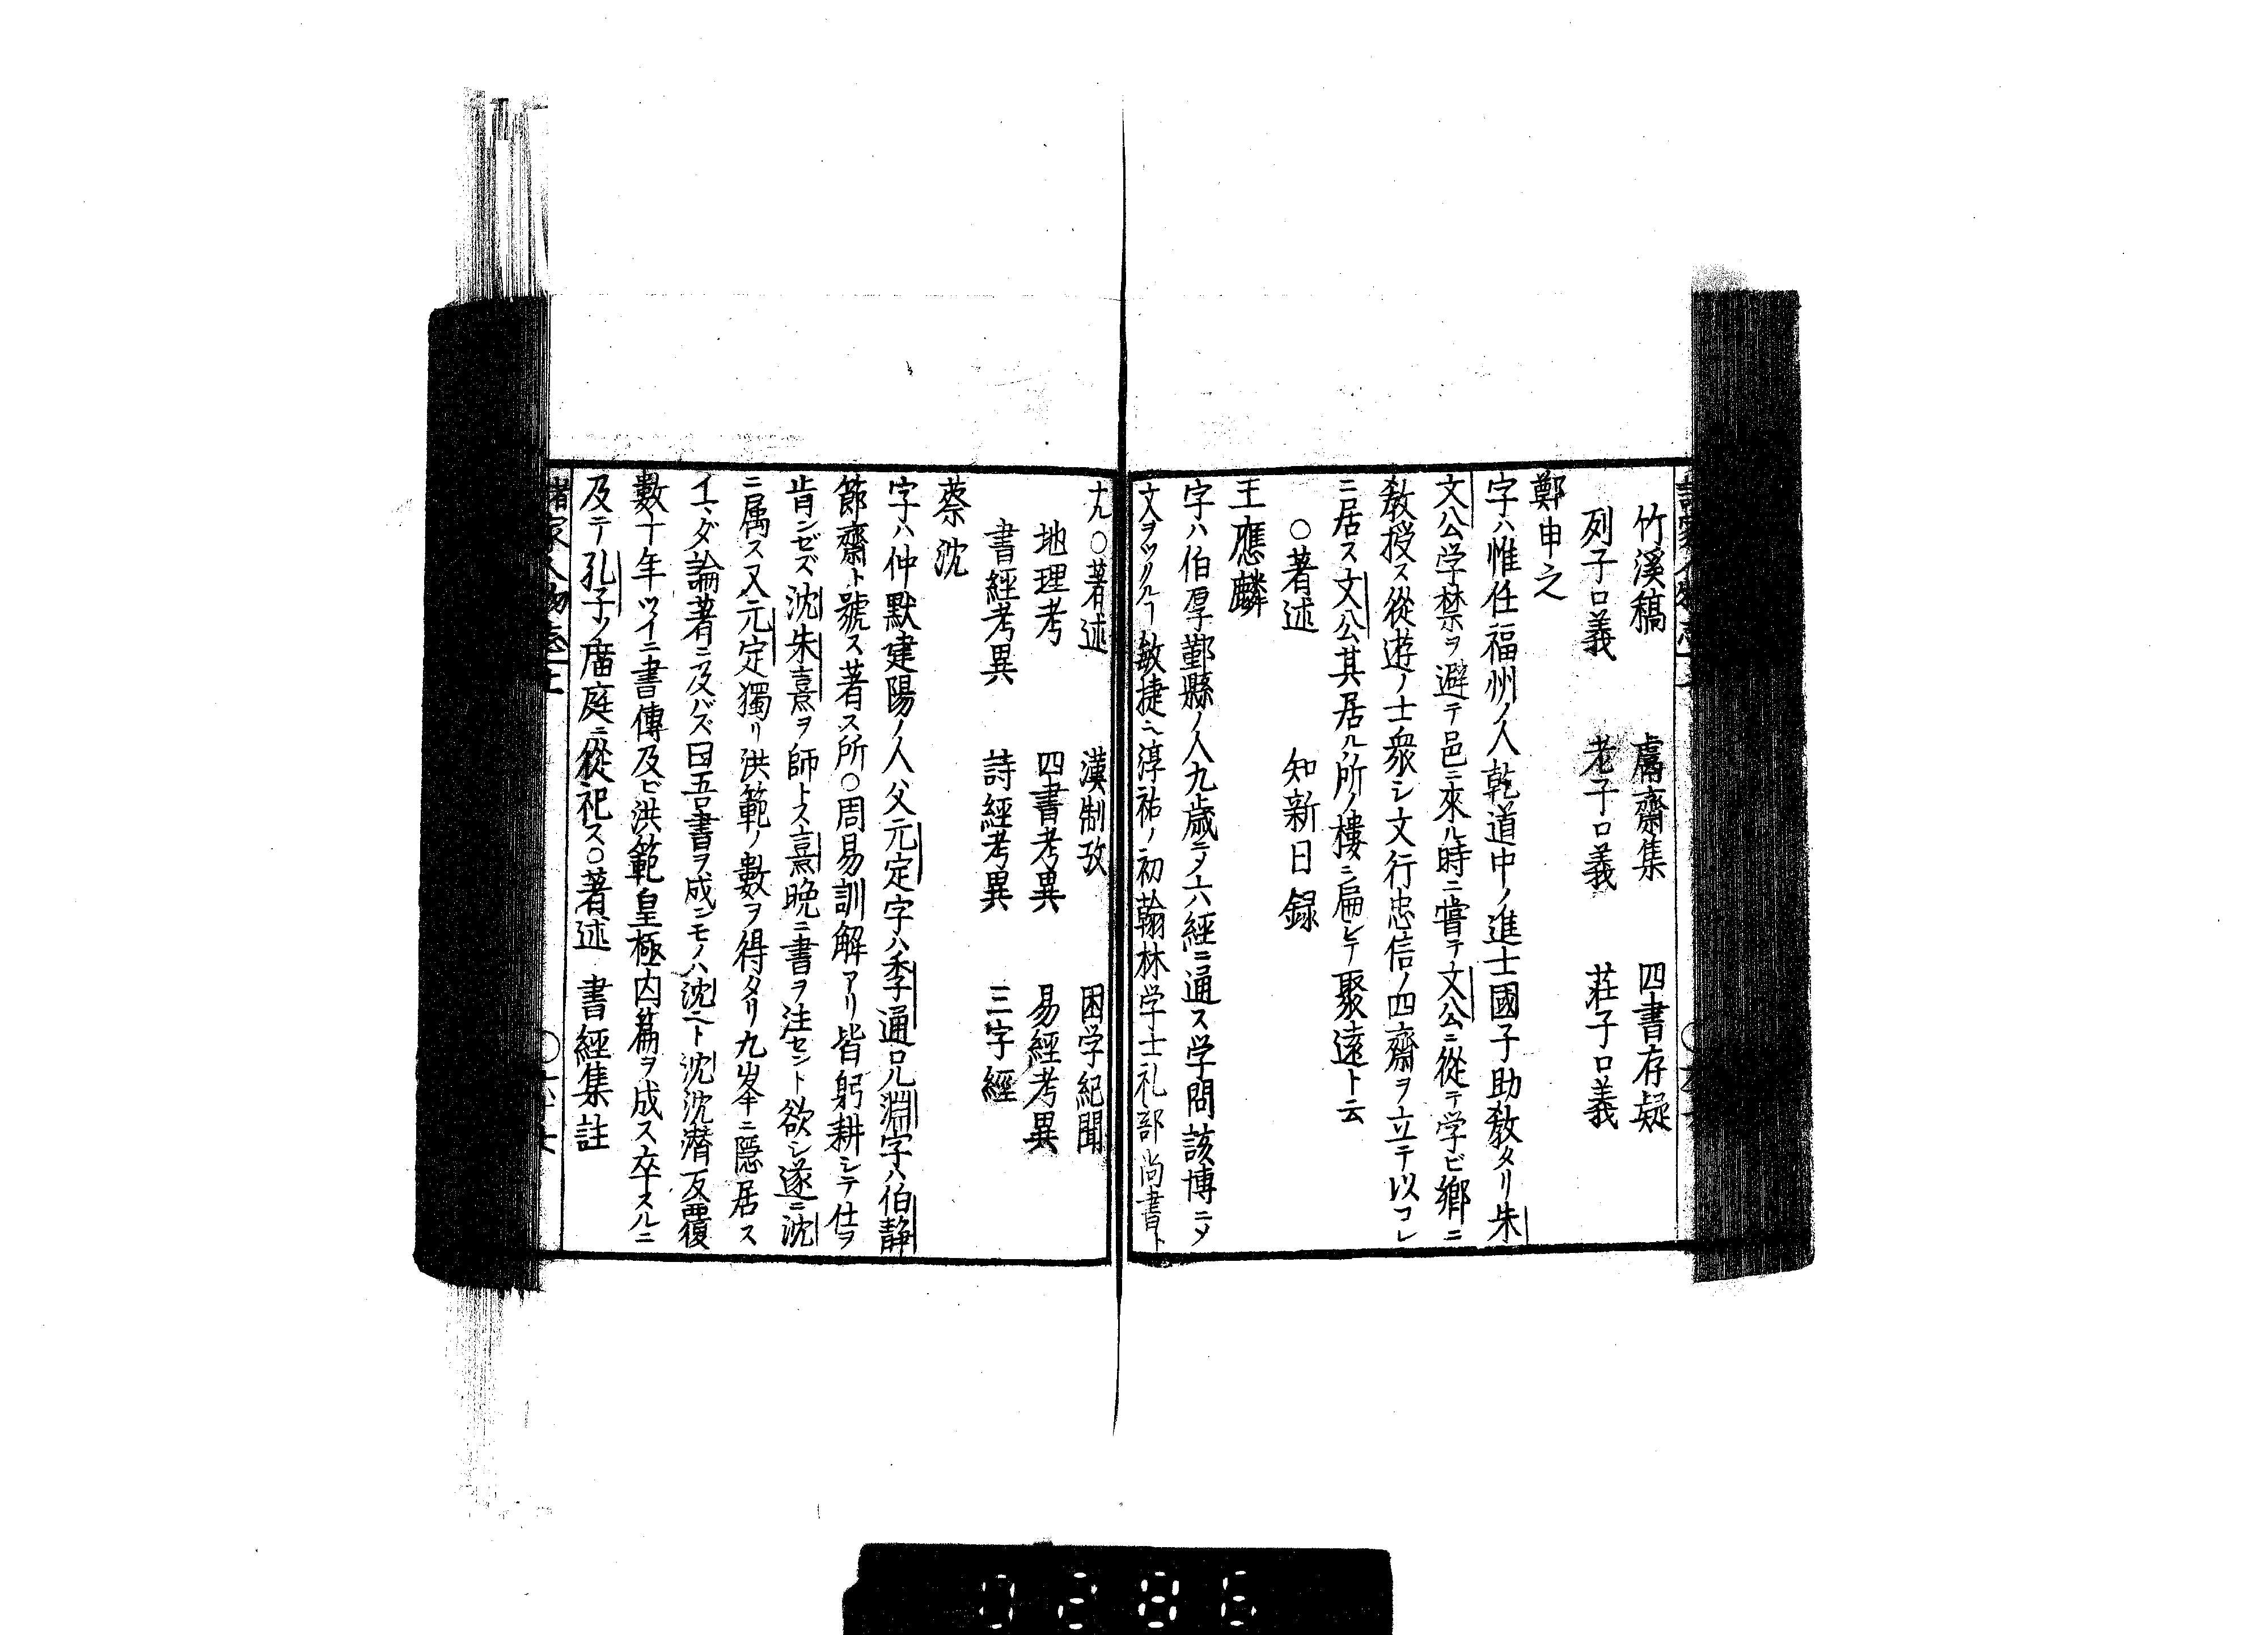 竹溪稿　鬳齋集　四書存疑
列子口義　老子口義　莊子口義
鄭申之
字ハ惟任福州ノ人乾道中ノ進士國子助敎タリ朱
文公学禁ヲ避テ邑ニ來ル時ニ嘗テ文公ニ從テ学ビ鄉ニ
敎授ス從遊ノ士衆シ文行忠信ノ四齋ヲ立テ以コレ
ニ居ス文公其居ル所ノ樓ニ扁シテ聚遠ト云
○著述　知新日録
王應麟
字ハ伯厚鄞縣ノ人九歳ニメ六經ニ通ス学問該博ニメ
文ヲツクルヿ敏捷ニ淳祐ノ初翰林学士礼部尚書ト
ナル○著述　漢制攷　困学紀聞
地理考　四書考異　易經考異
書經考異　詩經考異　三字經
蔡沈
字ハ仲默建陽ノ人父元定字ハ季通兄淵字ハ伯静
節齋ト號ス著ス所○周易訓解アリ皆躬耕シテ仕ヲ
肯ンゼズ沈朱熹ヲ師トス熹晩ニ書ヲ注セント欲シ遂ニ沈
ニ属ス又元定獨リ洪範ノ數ヲ得タリ九峯ニ隱居ス
イマダ論著ニ及バズ曰吾書ヲ成ンモノハ沈ニト沈沈潛反覆
數十年ツイニ書傳及ビ洪範皇極内篇ヲ成ス卒スルニ
及テ孔子ノ庿庭ニ從祀ス○著述　書經集註
諸家人物志上